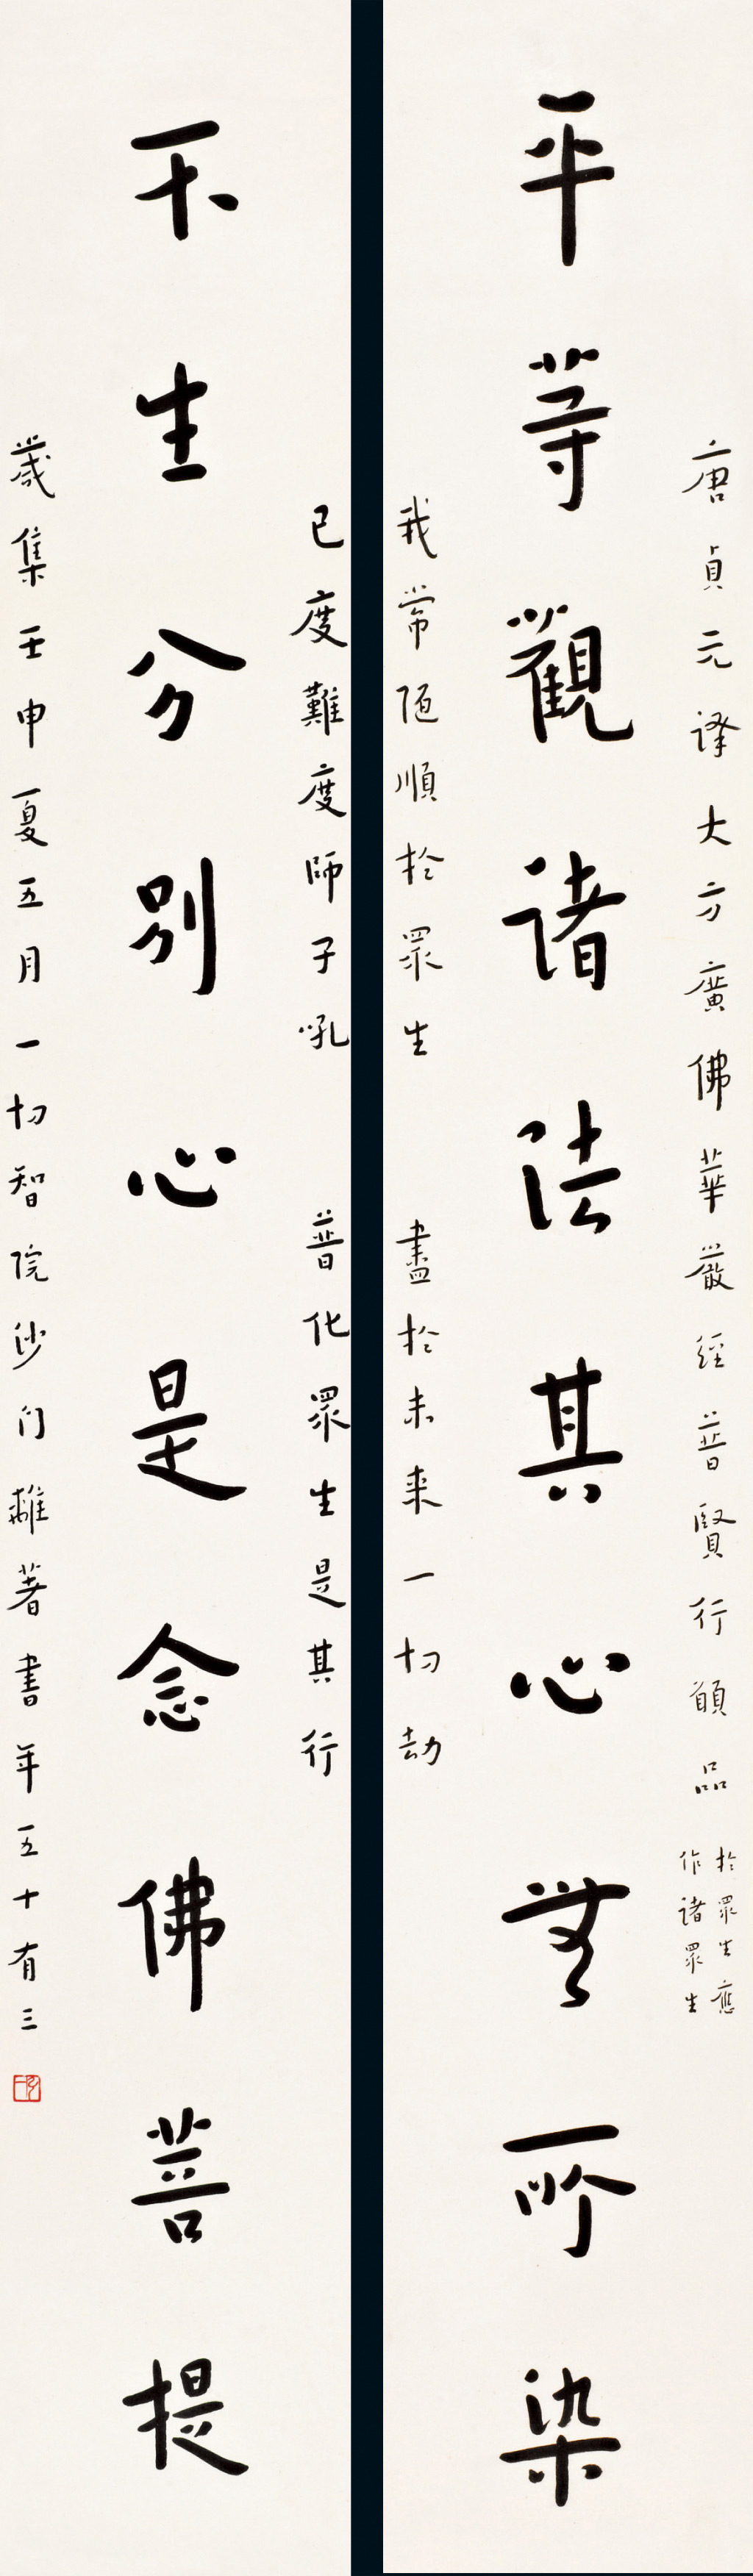 唐貞元譯大方廣佛華嚴經普賢行願品
於眾生應
作諸眾生
平等觀諸法其心無所染
我常隨順於眾生 盡於未来一切劫
已度難度師子吼 普化眾生是其行
不生分別心是念佛菩提
歲集壬申夏五月一切智院沙門離著書年五十有三